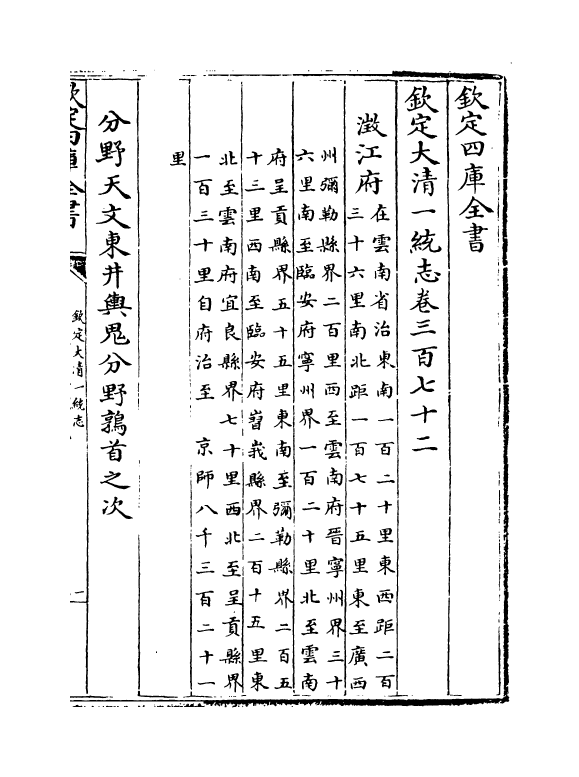 欽定四庫全書
欽定大清一統志卷三百七十二
澂江府
在雲南省治東南一百二十里東西距二百
三十六里南北距一百七十五里東至廣西
州彌勒縣界二百里西至雲南府晉寧州界三十
六里南至臨安府寧州界一百二十里北至雲南
府呈貢縣界五十五里東南至彌勒縣界二百五
十三里西南至臨安府嶍峩縣界二百十五里東
北至雲南府宜良縣界七十里西北至呈貢縣界
一百三十里自府治至 京師八千三百二十一
里
分野天文東井輿鬼分野鶉首之次
欽定四庫全書
欽定大清一統志